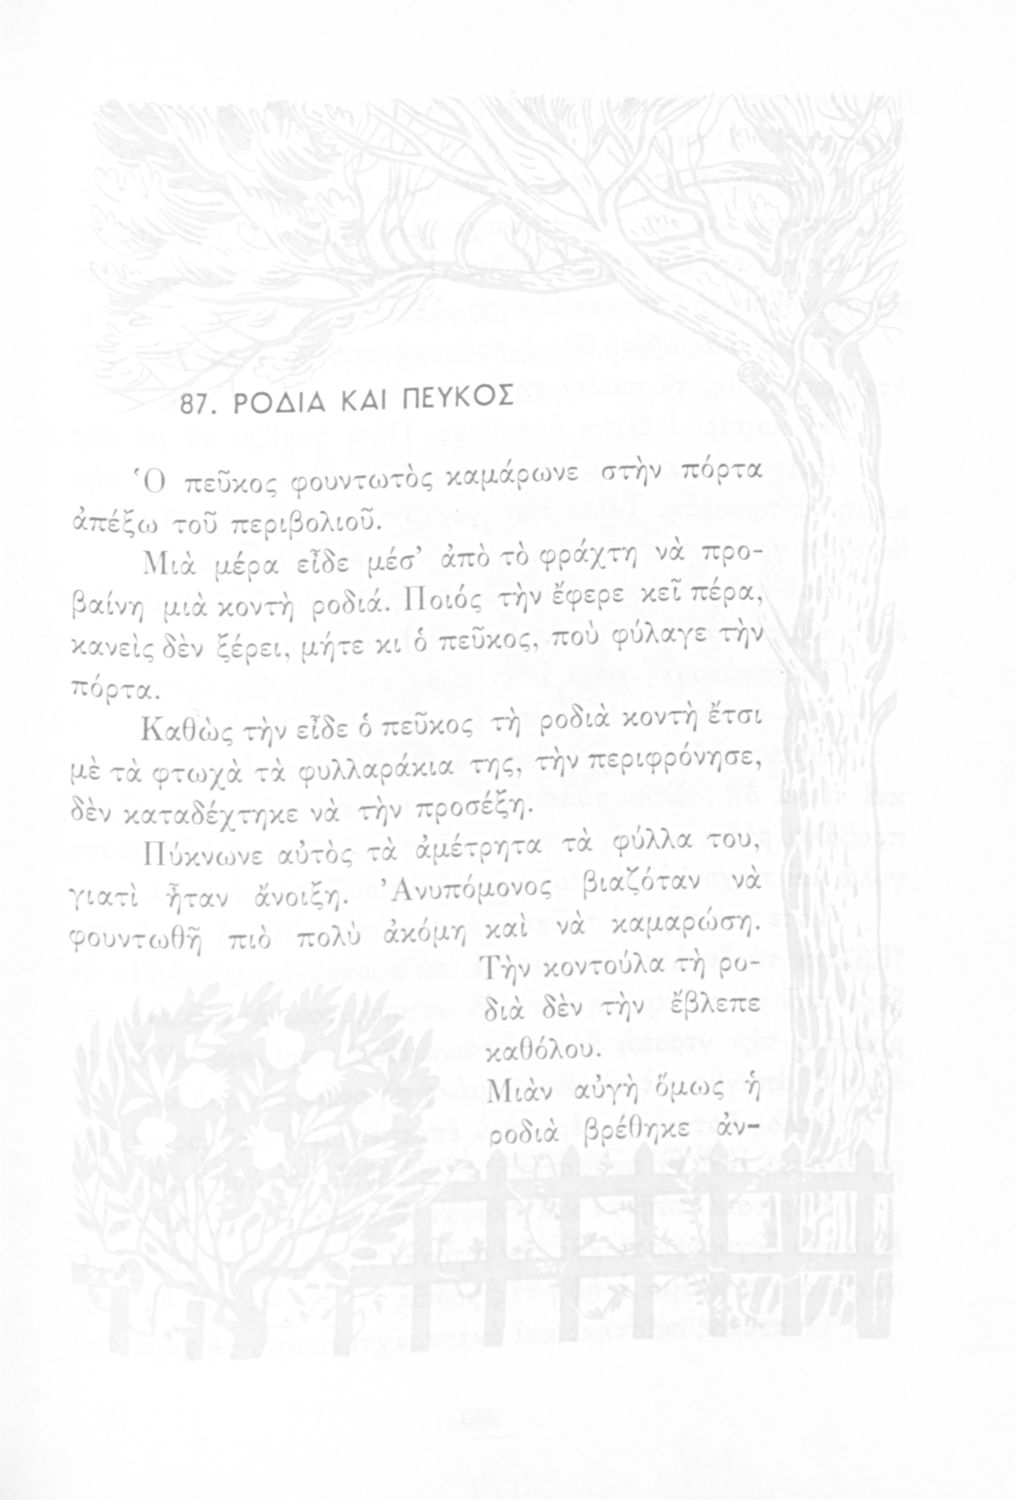 87. ΡΟΔΙΑ ΚΑΙ ΠΕΥΚΟΣ
Ὁ πεῦκος φουντωτὸς καμάρωνε στὴν πόρτα
ἀπέξω τοῦ περιβολιοῦ.
Μιὰ μέρα εἶδε μέσ’ ἀπὸ τὸ φράχτη νὰ προ-
βαίνη μιὰ κοντὴ ροδιά. Ποιός τὴν ἔφερε κεῖ πέρα,
κανεὶς δὲν ξέρει, μήτε κι ὁ πεῦκος, ποὺ φύλαγε τὴν
πόρτα.
Καθὼς τὴν εἶδε ὁ πεῦκος τὴ ροδιὰ κοντὴ ἔτσι
μὲ τὰ φτωχὰ τὰ φυλλαράκια της, τὴν περιφρόνησε,
δὲν καταδέχτηκε νὰ τὴν προσέξη.
Πύκνωνε αὐτὸς τὰ ἀμέτρητα τὰ φύλλα του,
γιατὶ ἦταν ἄνοιξη. Ἀνυπόμονος βιαζόταν νὰ
φουντωθῆ πιὸ πολὺ ἀκόμη καὶ νὰ καμαρώση.
Τὴν κοντούλα τὴ ρο-
διὰ δὲν τὴν ἔβλεπε
καθόλου.
Μιὰν αὐγὴ ὅμως ἡ
ροδιὰ βρέθηκε ἀν-